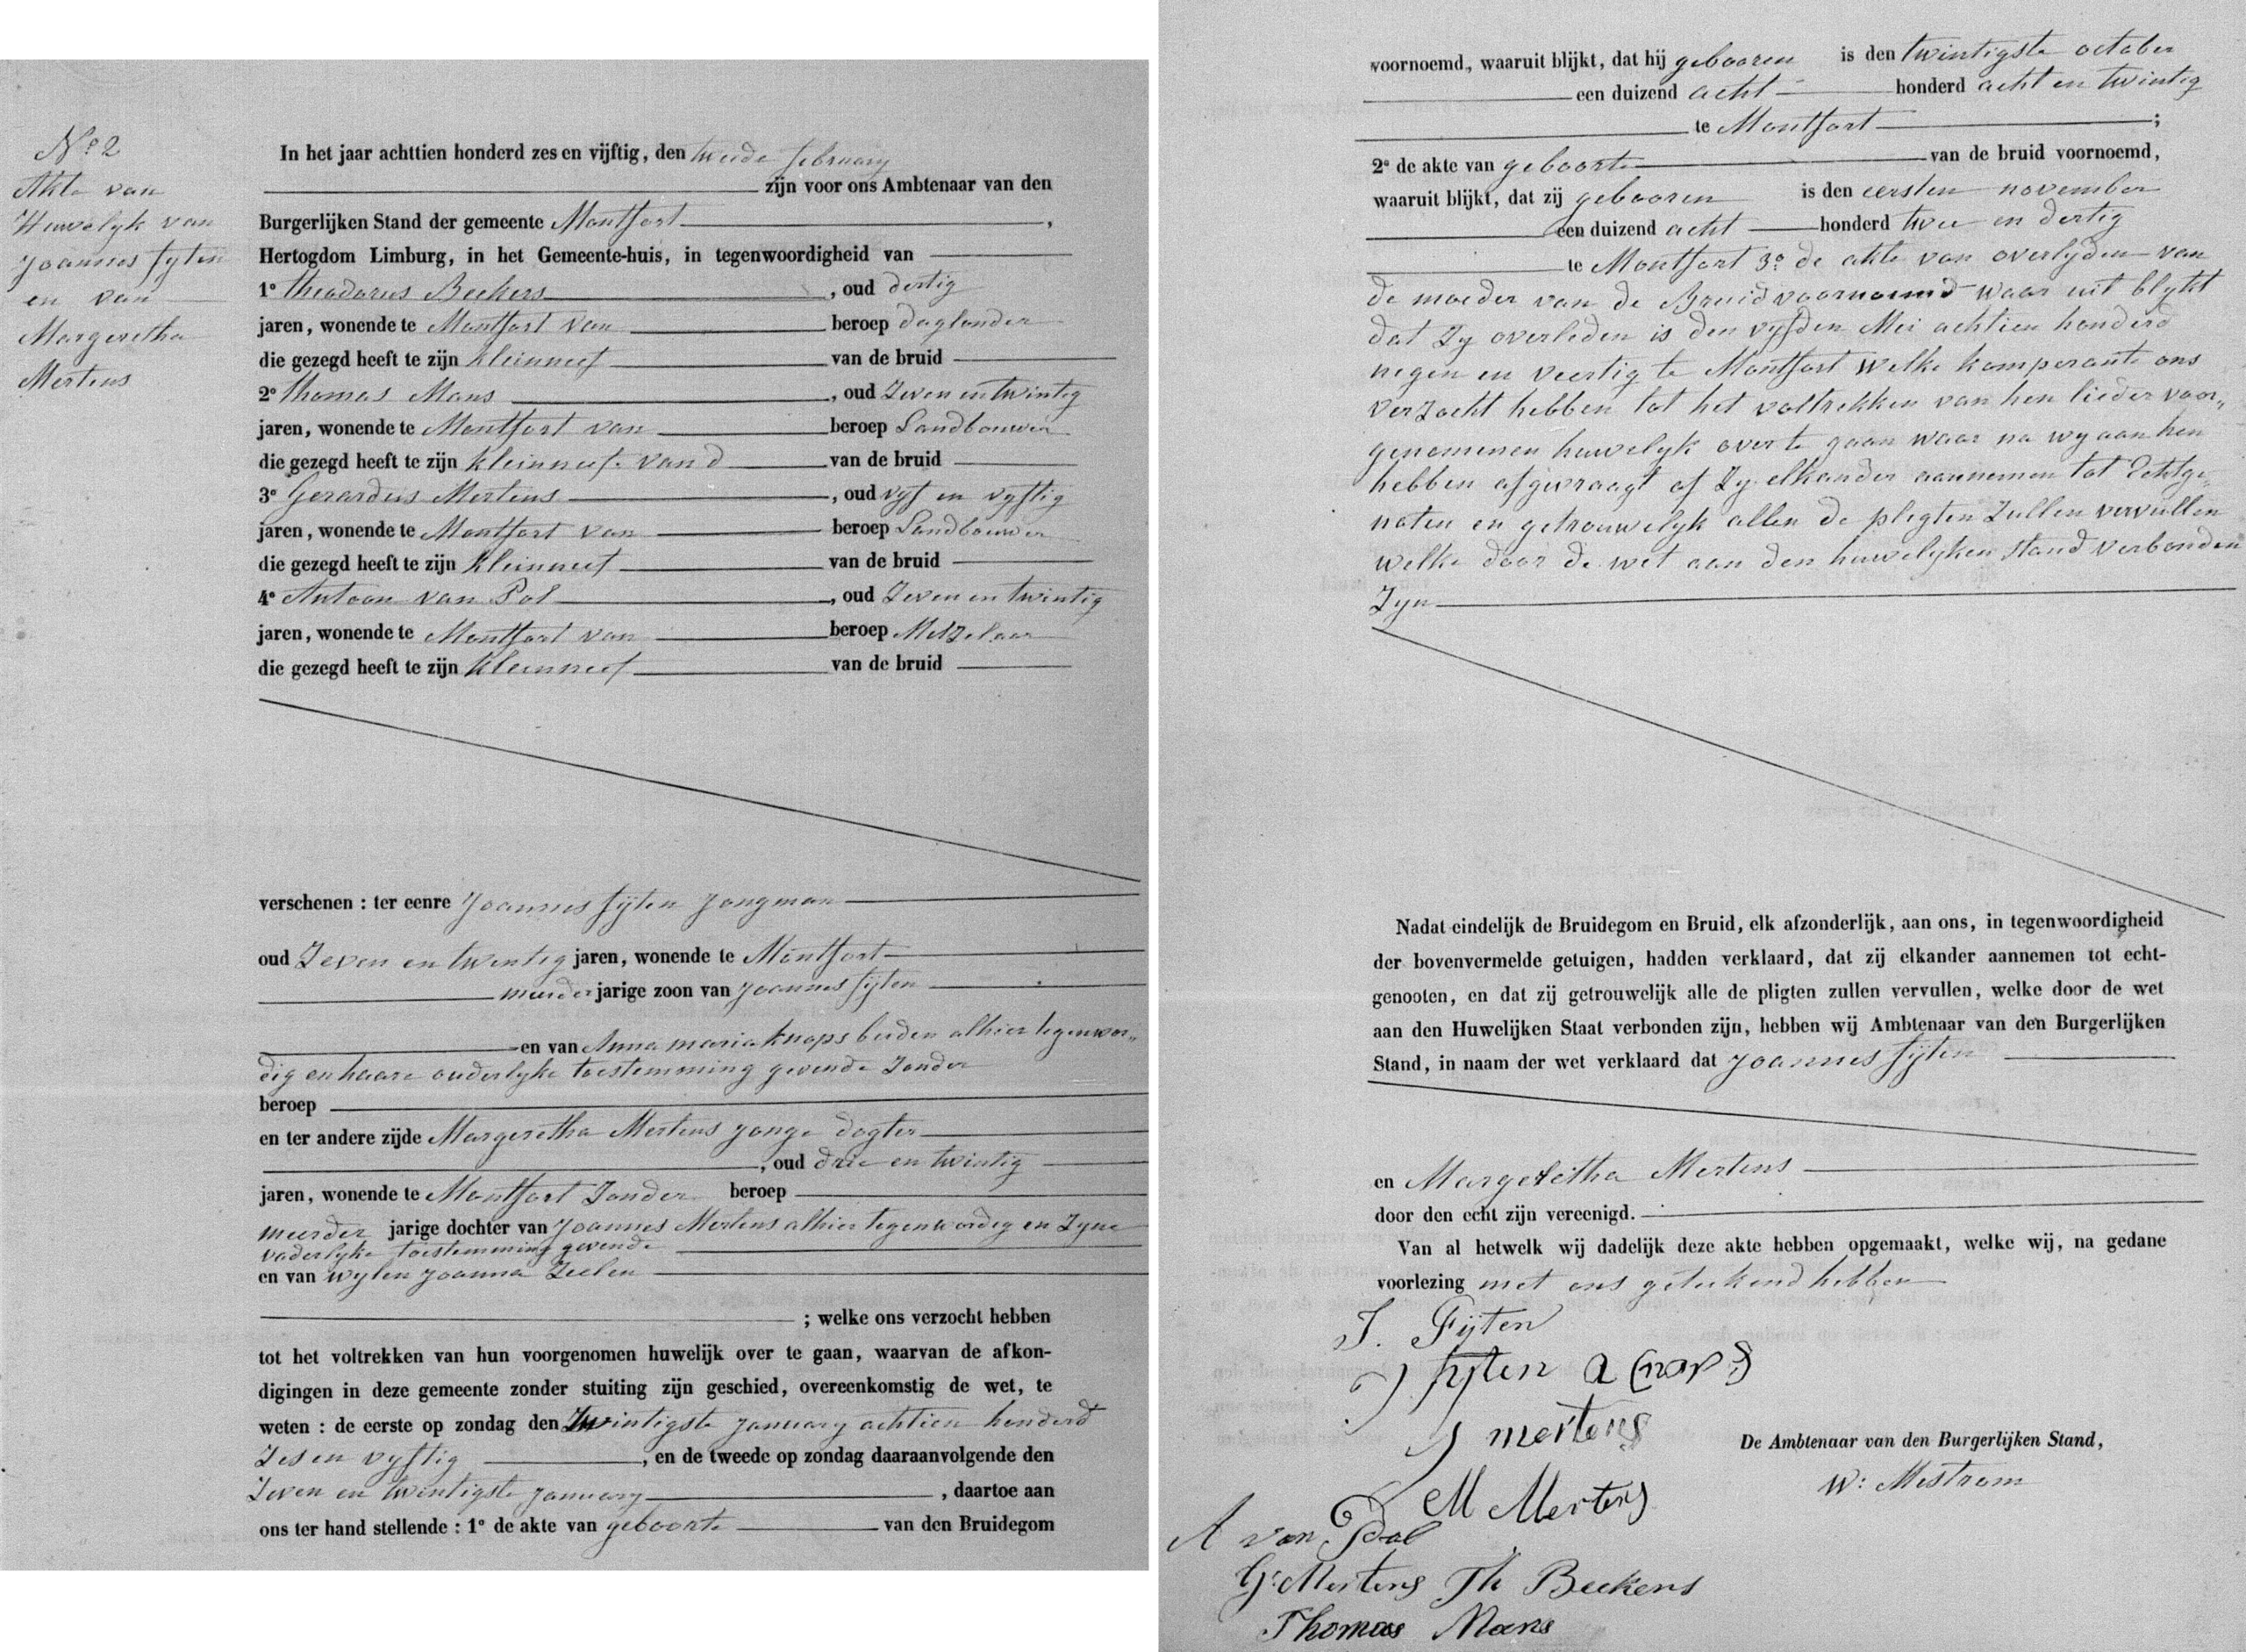 Nº 2
Akte van
Huwelyk van
Joannes fyten
en van
Margeretha
Mertens
In het jaar achttien honderd zes en vijftig, den tweede february
zijn voor ons Ambtenaar van den
Burgerlijken Stand der gemeente Montfort,
Hertogdom Limburg, in het Gemeente-huis, in tegenwoordigheid van
1º theodorus Beckers, oud dertig
jaren, wonende te Montfort van beroep daglonder
die gezegd heeft te zijn kleinneef van de bruid
2º thomas Mans, oud Zeven en twintig
jaren, wonende te Montfort van beroep Landbouwer
die gezegd heeft te zijn kleinneef van d van de bruid
3º Gerardus Mertens, oud vyf en vyftig
jaren, wonende te Montfort van beroep Landbouwer
die gezegd heeft te zijn kleinneef van de bruid
4º Antoon van Pol, oud Zeven en twintig
jaren, wonende te Montfort van beroep Metzelaar
die gezegd heeft te zijn kleinneef van de bruid
verschenen : ter eenre Joannes fijten Jongman
oud Zeven en twentig jaren, wonende te Montfort
meerder jarige zoon van Joannes fijten
en van Anna maria knops beiden alhier tegenwor„
dig en haare ouderlyke toestemming gevende Zonder
beroep
en ter andere zijde Margeretha Mertens jonge dogter
, oud drie en twintig
jaren, wonende te Montfort Zonder beroep
meerder jarige dochter van Joannes Mertens alhier tegenwordig en Zyne
vaderlyke toestemming gevende
en van wylen Joanna Zeelen
; welke ons verzocht hebben
tot het voltrekken van hun voorgenomen huwelijk over te gaan, waarvan de afkon-
digingen in deze gemeente zonder stuiting zijn geschied, overeenkomstig de wet, te
weten : de eerste op zondag den Twintigste January achtien honderd
Zes en vyftig, en de tweede op zondag daaraanvolgende den
Zeven en twintigste january, daartoe aan
ons ter hand stellende : 1º de akte van geboorte van den Bruidegom
voornoemd, waaruit blijkt, dat hij gebooren is den twintigste october
een duizend acht honderd acht en twintig
te Montfort ;
2º de akte van geboorte van de bruid voornoemd,
waaruit blijkt, dat zij gebooren is den eersten november
een duizend acht honderd twee en dertig
te Montfort 3º de akte van overlyden van
de moeder van de Bruid voornoemd waar uit blykt
dat Zy overleden is den vyfden Mei achtien honderd
negen en veertig te Montfort Welke komparante ons
verzocht hebben tot het voltrekken van hen lieder voor„
genomenen huwelyk over te gaan waar na wy aan hen
hebben afgevraagt of Zy elkander aannemen tot Echtge„
noten en getrouwelyk allen de plegten Zullen vervullen
welke door de wet aan den huwelyken stand verbonden
Zyn
Nadat eindelijk de Bruidegom en Bruid, elk afzonderlijk, aan ons, in tegenwoordigheid
der bovenvermelde getuigen, hadden verklaard, dat zij elkander aannemen tot echt-
genooten, en dat zij getrouwelijk alle de pligten zullen vervullen, welke door de wet
aan den Huwelijken Staat verbonden zijn, hebben wij Ambtenaar van den Burgerlijken
Stand, in naam der wet verklaard dat Joannes fijten
en Margeretha Mertens
door den echt zijn vereenigd.
Van al hetwelk wij dadelijk deze akte hebben opgemaakt, welke wij, na gedane
voorlezing met ons getekend hebben
J. Fijten
J fijten a Cnops
J mertens
De Ambtenaar van den Burgerlijken Stand,
W: Mestrom
M Mertens
A van Pol
G: Mertens Th Beckers
Thomas Mans